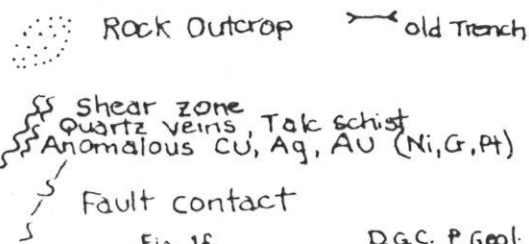 Rock Outcrop old Trench
Shear zone
Quartz veins, Talc schist
Anomalous Cu, Ag, Au (Ni, Cr, Pt)
Fault contact
Fig. 1f D.G.C. P. Geol.